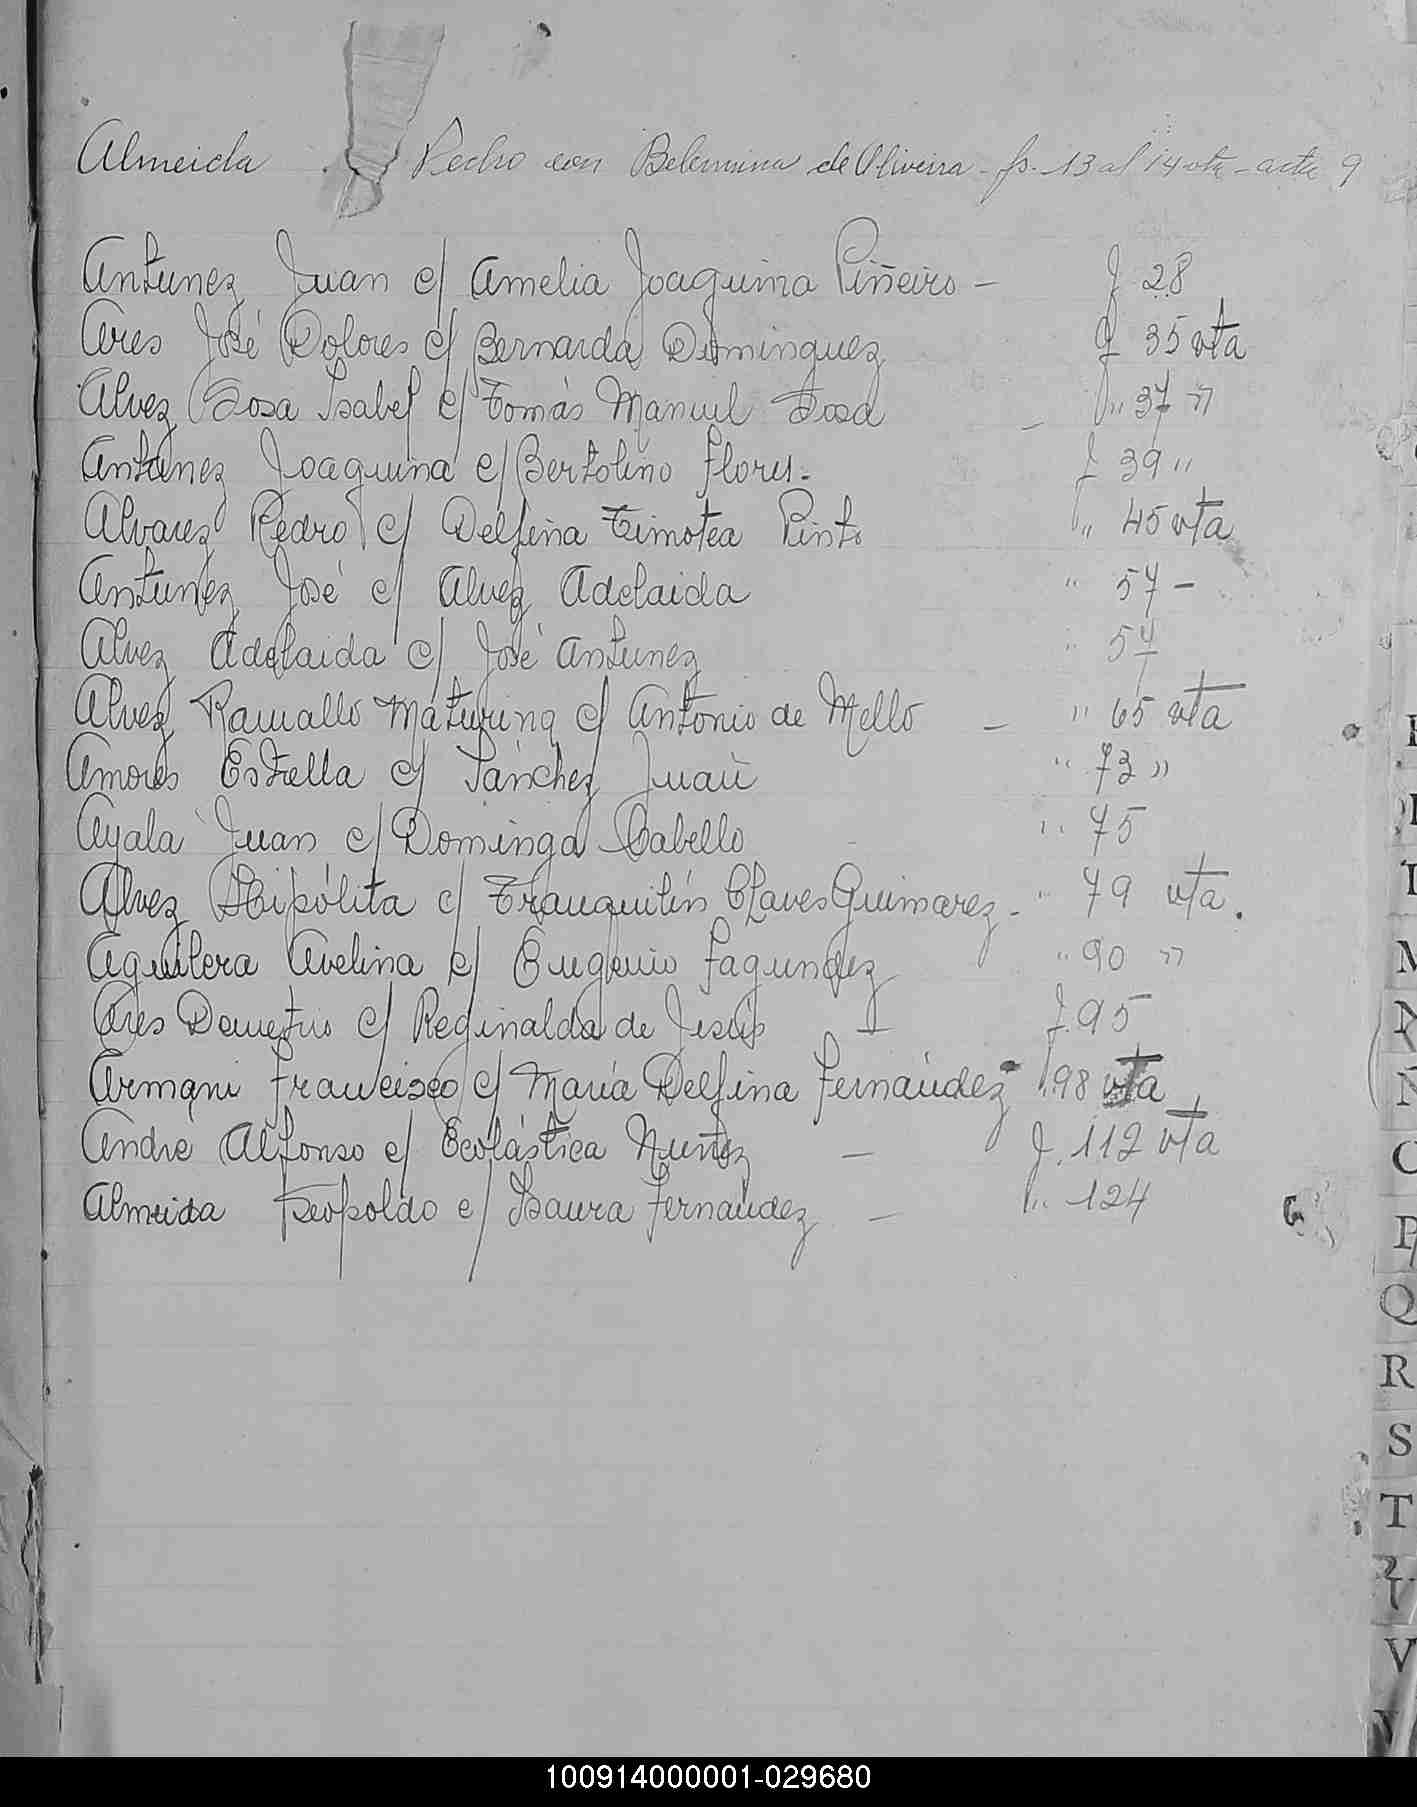 Almeida Pedro con Belermina de Oliveira - fs. 13 al 14 vta - acta 9
Antunez Juan c/ Amelia Joaquina Piñeiro - f 28
Ares José Dolores c/ Bernarda Dominguez f 35 vta
Alvez Sosa Isabel c/ Tomás Manuel Sosa - " 37 "
Antunez Joaquina c/ Bertolino Flores. f 39 "
Alvarez Pedro c/ Delfina Timotea Pinto " 45 vta
Antunez José c/ Alvez Adelaida " 57 -
Alvez Adelaida c/ José Antunez " 57
Alvez Ramallo Maturina c/ Antonio de Mello - " 65 vta
Amores Estrella c/ Sánchez Juan " 73 "
Ayala Juan c/ Dominga Cabello " 75
Alvez Hipólita c/ Tranquilin Chaves Guimarez - " 79 vta.
Aguilera Avelina c/ Eugenio Fagundez " 90 "
Ares Demetrio c/ Reginalda de Jesús - f. 95
Armani Francisco c/ María Delfina Fernández " 98 vta
André Alfonso c/ Ecolástica Nuñez - f. 112 vta
Almeida Leopoldo c/ Isaura Fernández - " 124
I
M
N
Ñ
O
P
Q
R
S
T
U
V
100914000001-029680